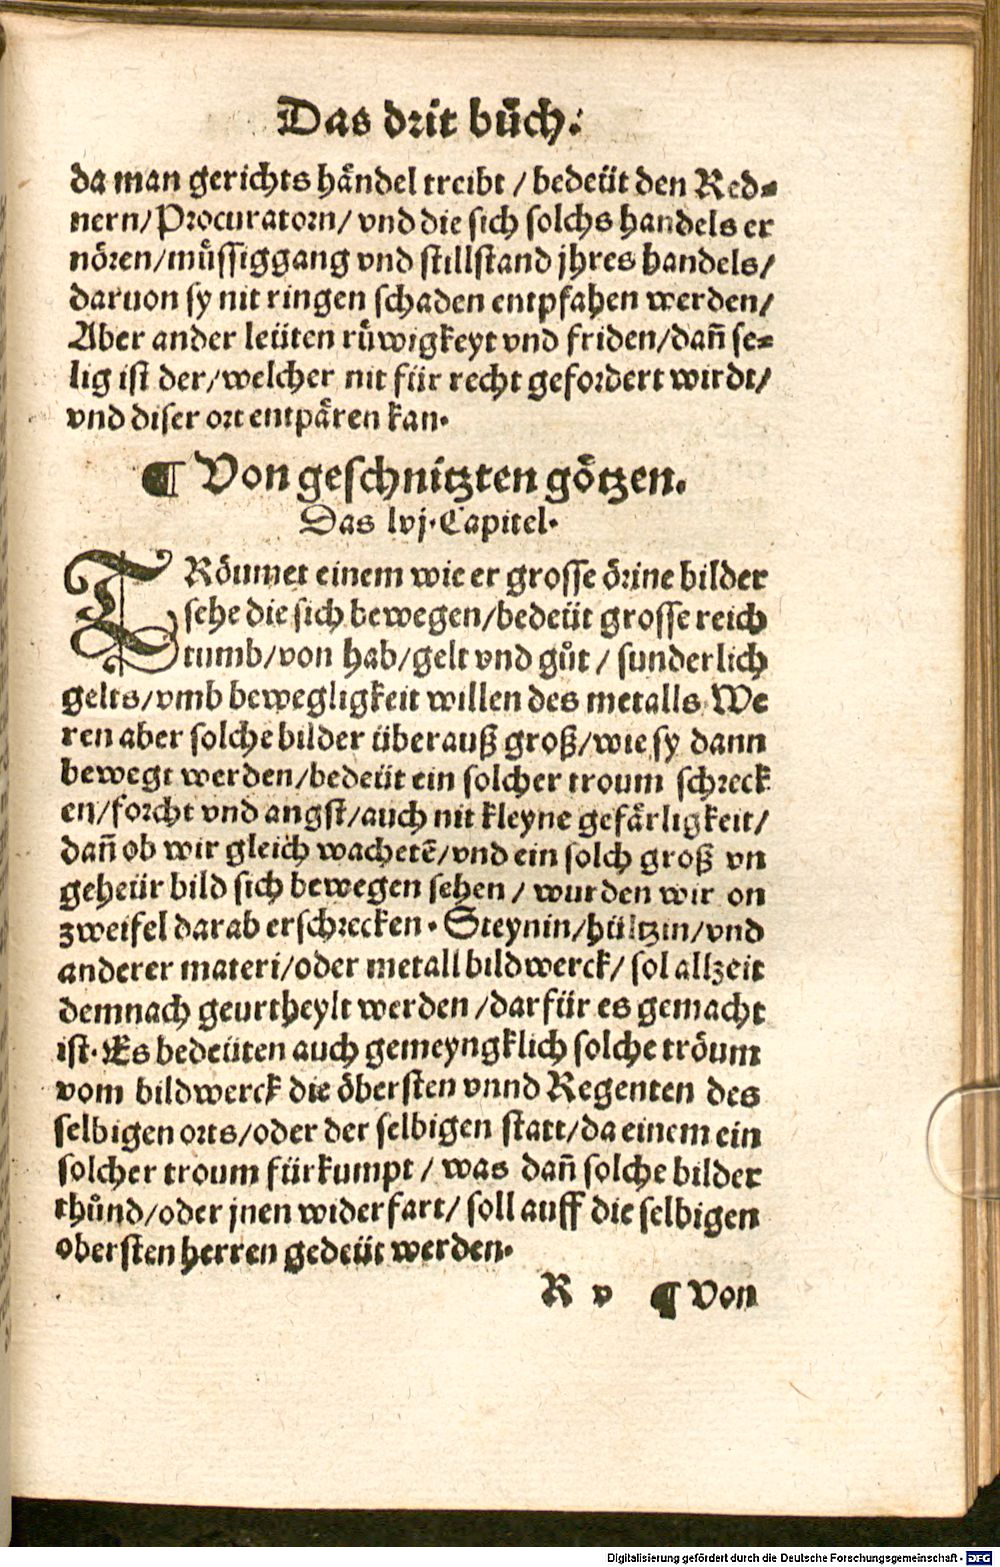 Das drit bůch.
da man gerichts händel treibt / bedeüt den Red⸗
nern/Procuratorn/ vnd die sich solchs handels er
nören/müssiggang vnd stillstand jhres handels/
daruon sy nit ringen schaden entpfahen werden/
Aber ander leüten růwigkeyt vnd friden/dañ se⸗
lig ist der/welcher nit für recht gefordert wirdt/
vnd diser ort entpären kan.
¶ Von geschnitzten götzen.
Das lvj. Capitel.
TRöumet einem wie er grosse örine bilder
sehe die sich bewegen/bedeüt grosse reich
tumb/von hab/gelt vnd gůt / sunderlich
gelts/vmb bewegligkeit willen des metalls. We
ren aber solche bilder überauß groß/wie sy dann
bewegt werden/bedeüt ein solcher troum schreck
en/forcht vnd angst/auch nit kleyne gefärligkeit/
dañ ob wir gleich wachetē/vnd ein solch groß vn
geheür bild sich bewegen sehen / wurden wir on
zweifel darab erschrecken. Steynin/hültzin/vnd
anderer materi/oder metall bildwerck/ sol allzeit
demnach geurtheylt werden /darfür es gemacht
ist. Es bedeüten auch gemeyngklich solche tröum
vom bildwerck die öbersten vnnd Regenten des
selbigen orts/oder der selbigen statt/da einem ein
solcher troum fürkumpt / was dañ solche bilder
thůnd/oder jnen widerfart/ soll auff die selbigen
obersten herren gedeüt werden.
R v ¶ Von
Digitalisierung gefördert durch die Deutsche Forschungsgemeinschaft - DFG